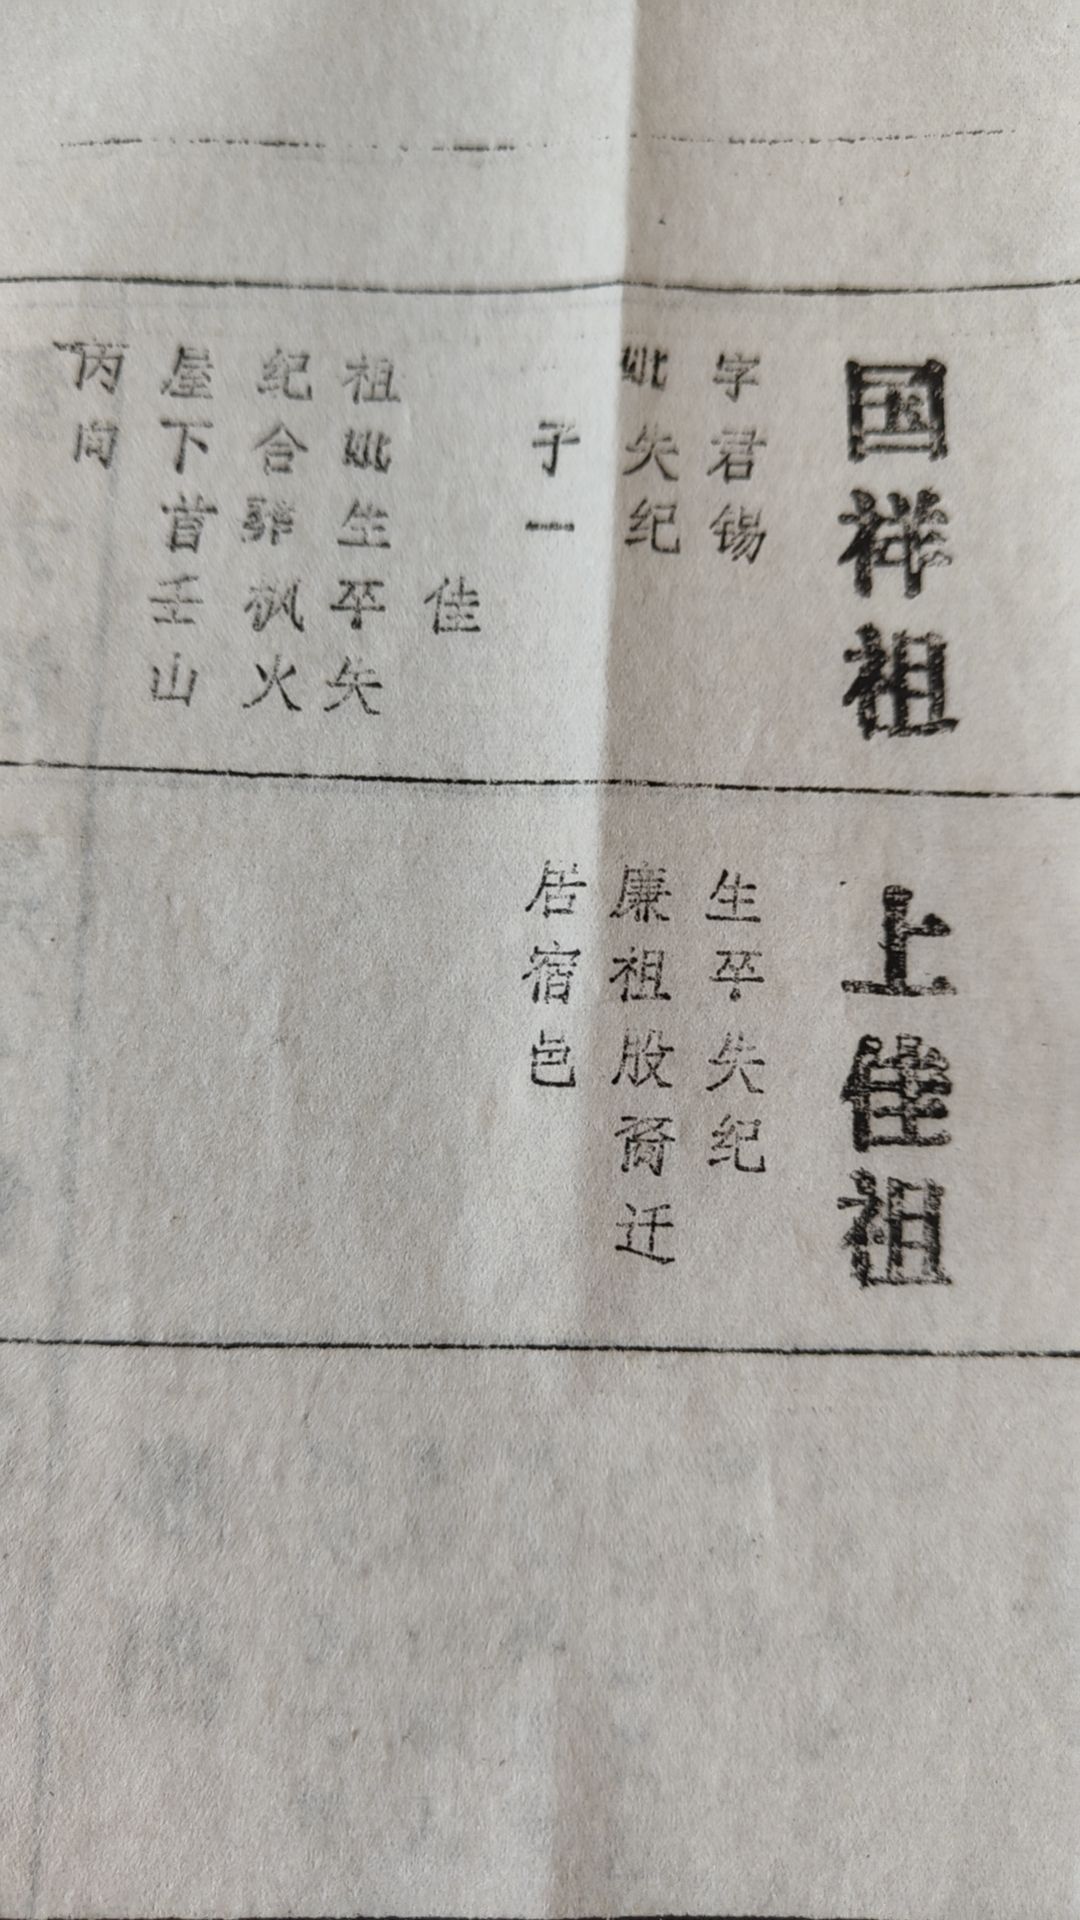 国祥祖
字君锡
妣失纪
子一
佳
祖妣生卒失
纪合葬枫火
屋下首壬山
丙向
上佳祖
生卒失纪
廉祖股裔迁
居宿邑